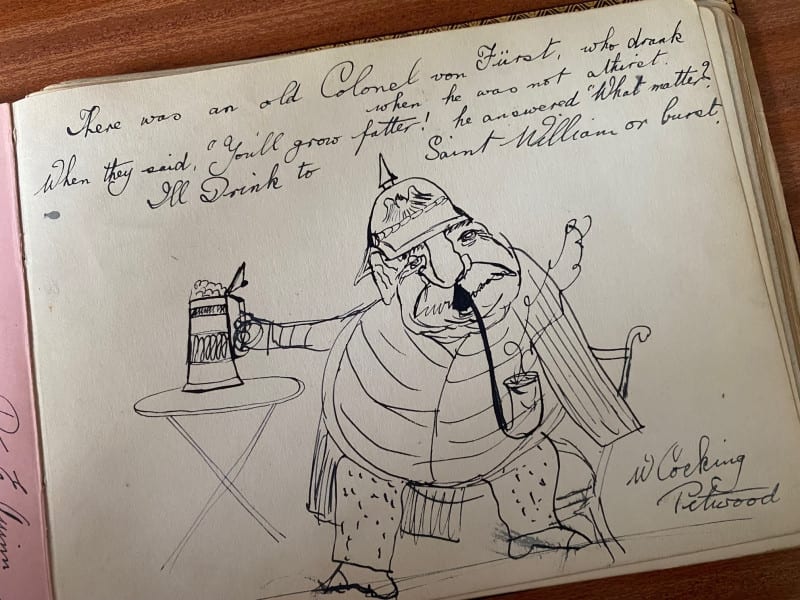 There was an old Colonel von Fürst, who drank
when he was not athirst.
When they said, "You'll grow fatter! he answered "What matter?
I'll Drink to Saint William or burst.
W Cocking
Petwood